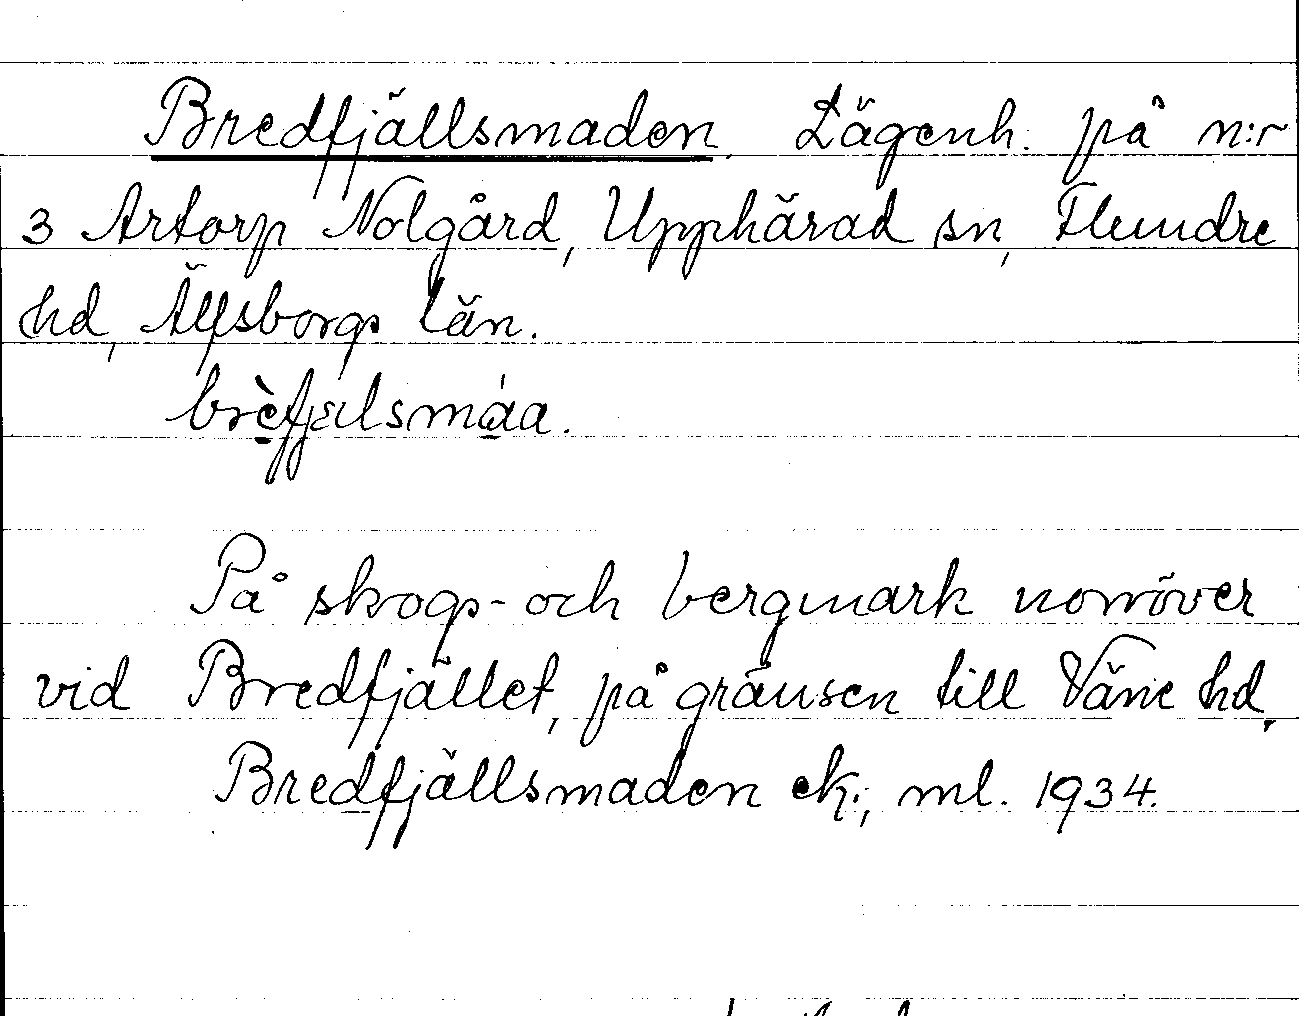 Bredfjällsmaden. Lägenh. på n:r
3 Artorp Nolgård, Upphärad sn, Flundre
hd, Älfsborgs län.
brèfjälsmáa.
På skogs- och bergmark norröver
vid Bredfjället, på gränsen till Väne hd.
Bredfjällsmaden ek., ml. 1934.